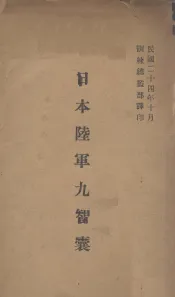 民國二十四年十月
訓練總監部譯印
日本陸軍九智囊